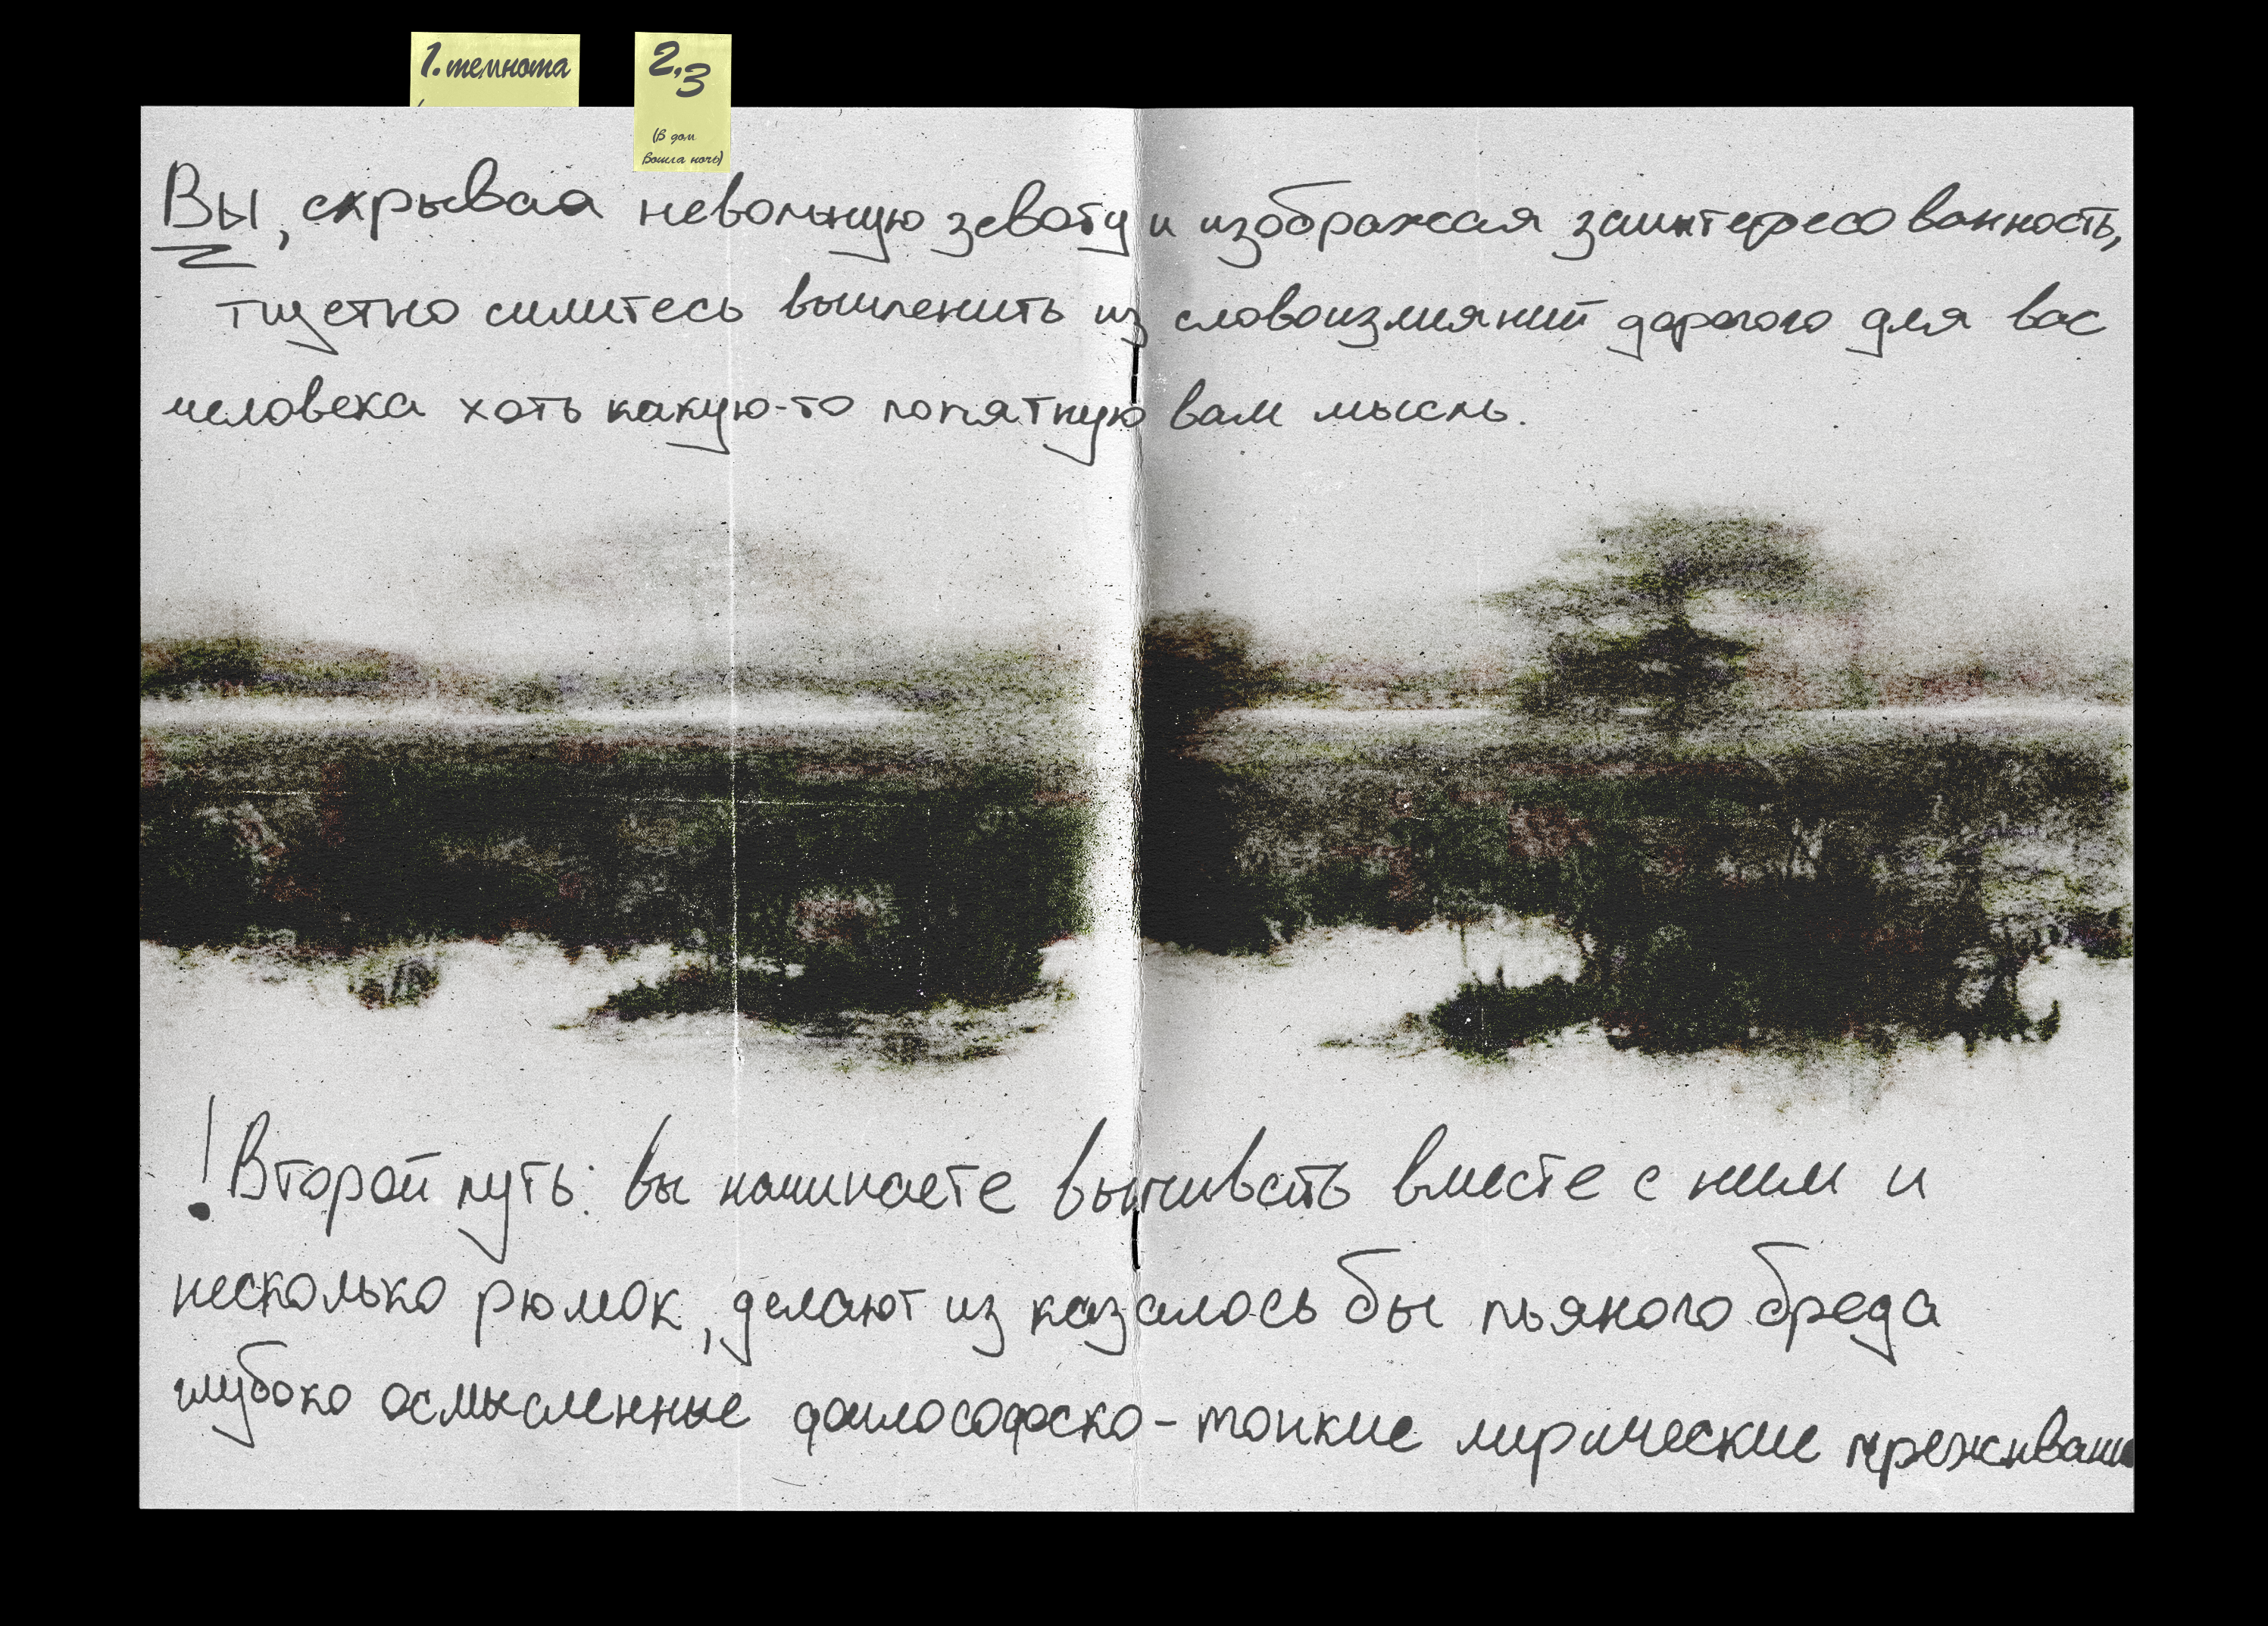 1. темнота
2,3
(В дом
вошла ночь)
Вы, скрывая невольную зевоту и изображая заинтересованность,
тщетно силитесь вычленить из словоизлияний дорогого для вас
человека хоть какую-то понятную вам мысль.
! Второй путь: вы начинаете выпивать вместе с ним и
несколько рюмок, делают из казалось бы пьяного бреда
глубоко осмысленные философско-тонкие лирические